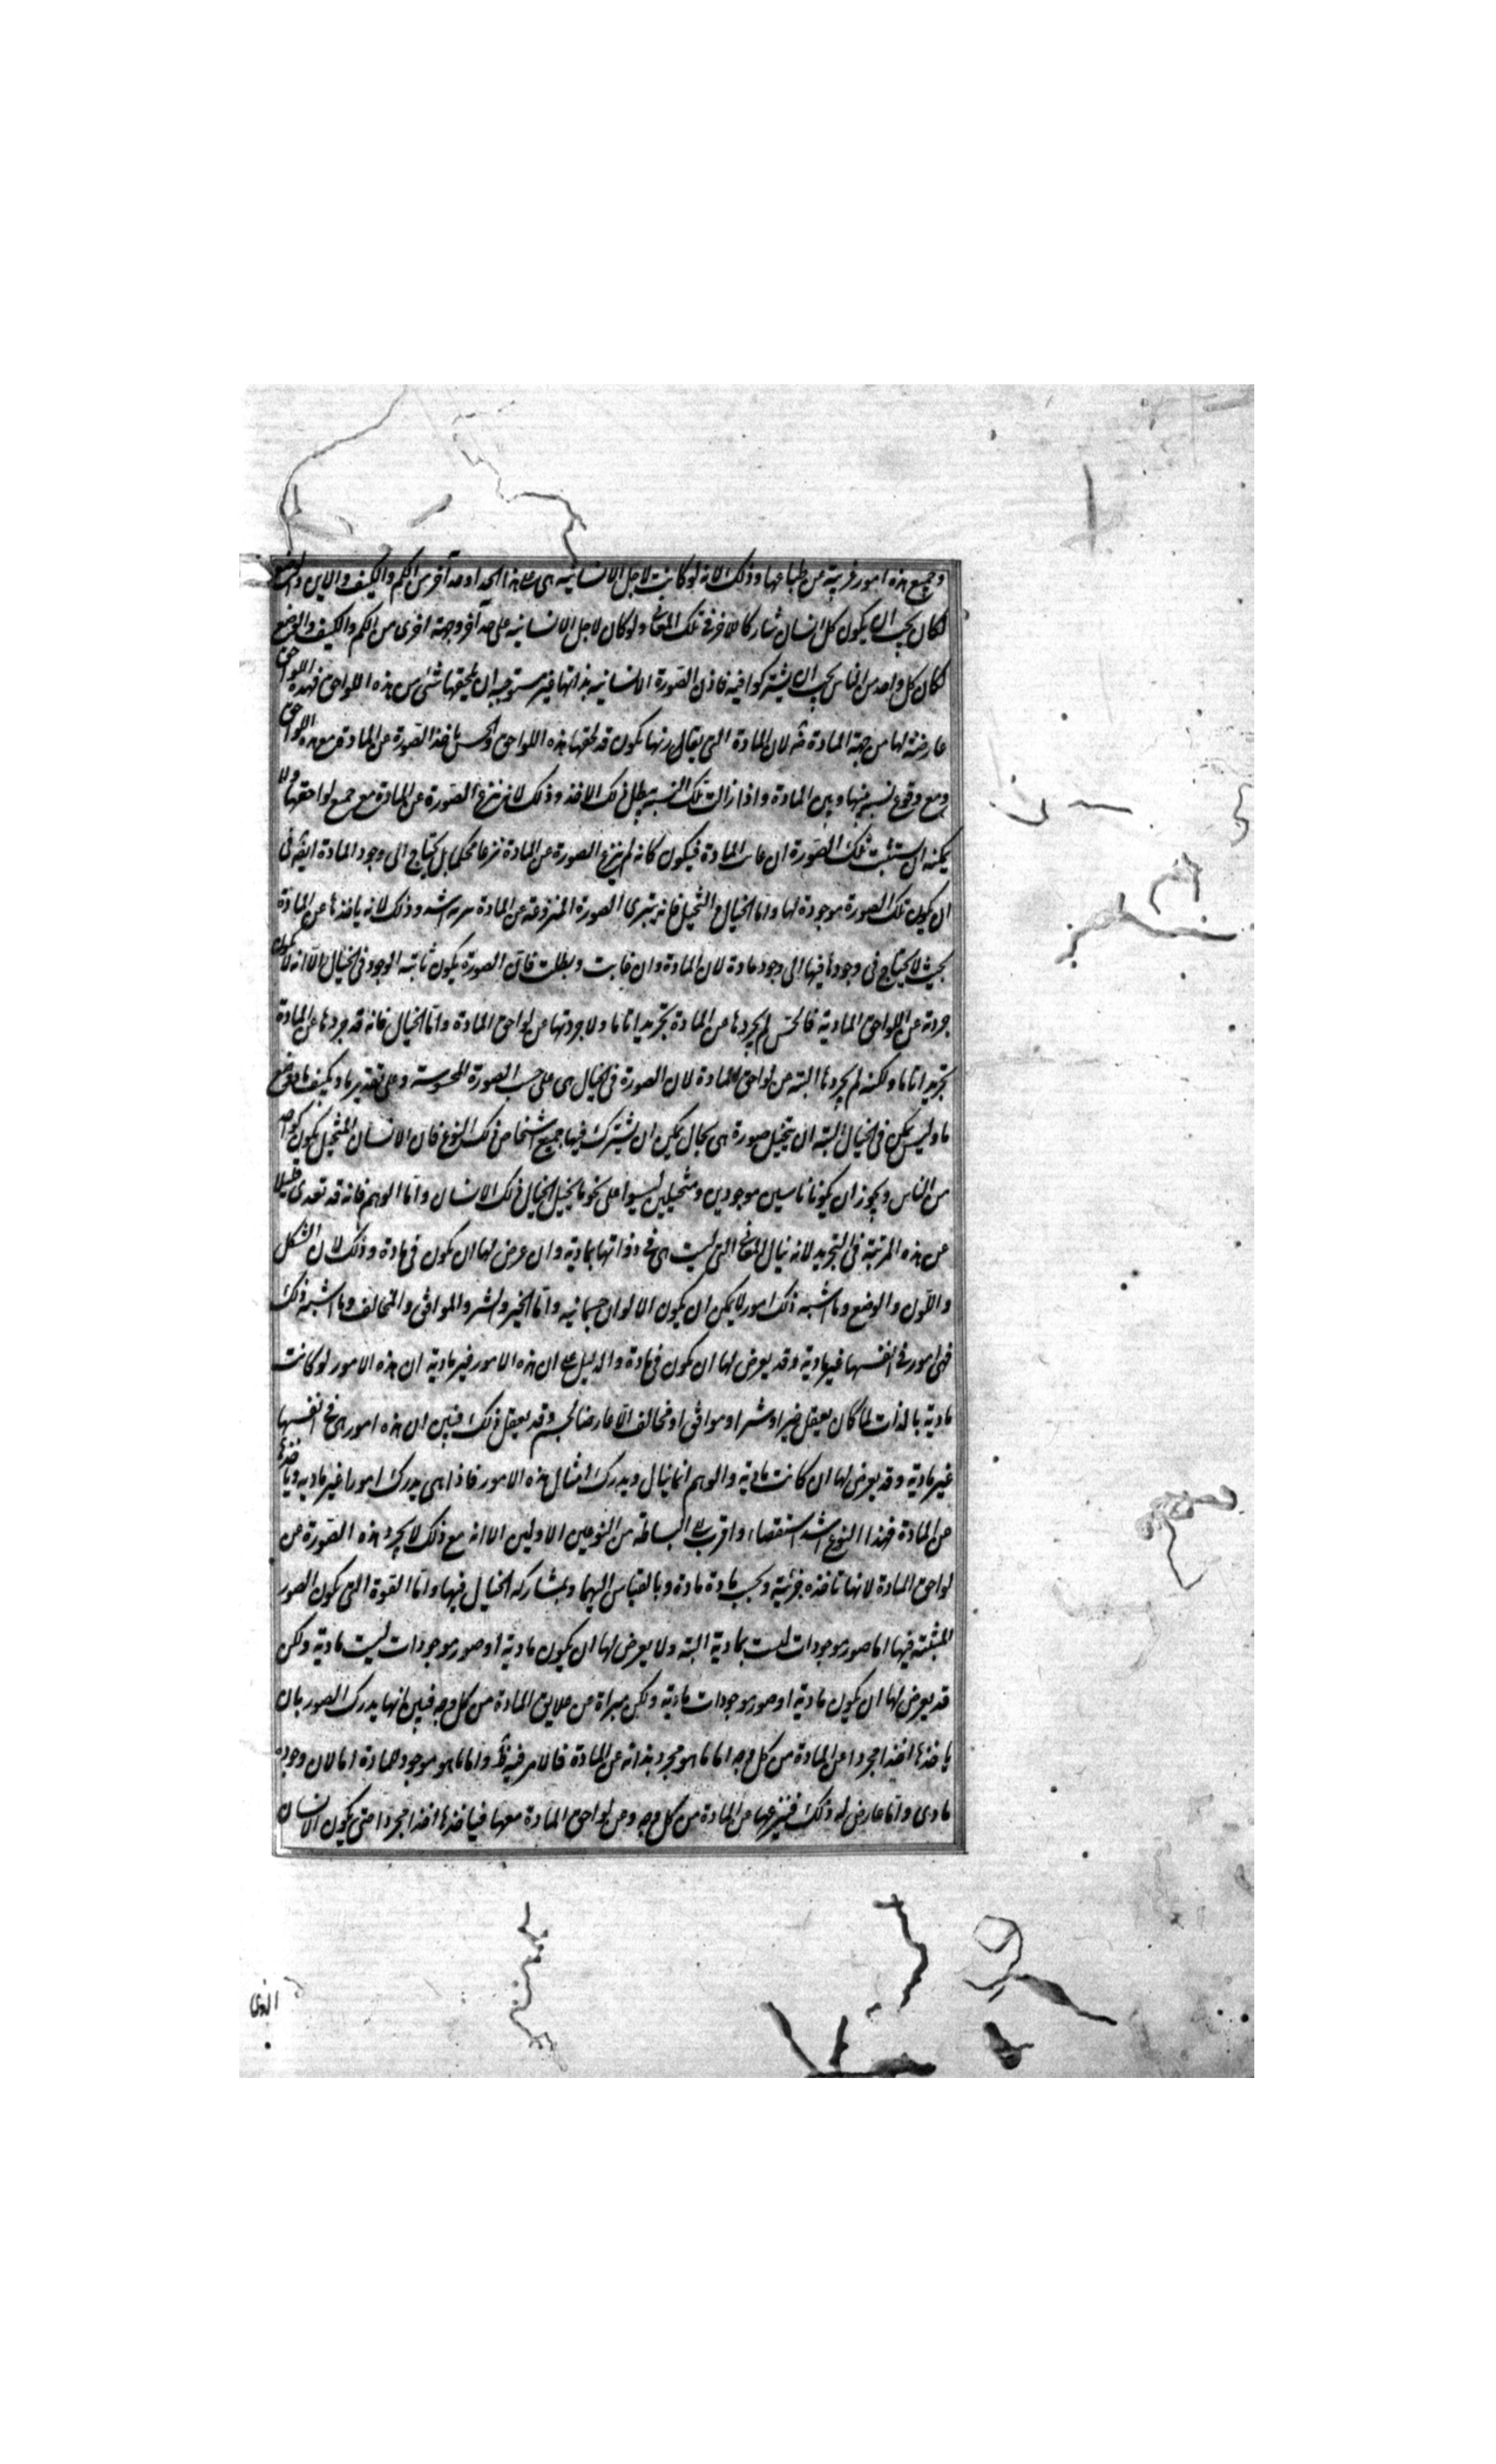 وجميع هذه امور غريبة عن طباعها وذلك لانه لو كانت لاجل الانسانية هى على هذا الحد او حد آخر من الكم والكيف والاين والوضع
لكان يجب ان يكون كل انسان مشاركا للاخر فى تلك المعانى ولو كان لاجل الانسانية على حد آخر وجهة اخرى من الكم والكيف والوضع
لكان كل واحد من الناس يجب ان يشتركوا فيه فاذن الصورة الانسانية بذاتها غير مستوجبة ان يلحقها شئ من هذه اللواحق فهذه اللواحق
عارضة لها من جهة المادة لان المادة التى يقارنها يكون قد لحقها هذه اللواحق والحس ياخذ الصورة عن المادة مع هذه اللواحق
ومع وقوع نسبة بينها وبين المادة واذا زالت تلك النسبة بطل ذلك الاخذ وذلك لانه ينزع الصورة عن المادة مع جميع لواحقها ولا
يمكنه ان يستثبت تلك الصورة ان غابت المادة فيكون كانه لم ينزع الصورة عن المادة نزعا محكما بل يحتاج الى وجود المادة ايضا فى
ان يكون تلك الصورة موجودة لها واما الخيال والتخيل فانه يبرى الصورة المنزوعة عن المادة تبرية اشد وذلك لانه ياخذها عن المادة
بحيث لا يحتاج فى وجودها فيها الى وجود مادة لان المادة وان غابت وبطلت فان الصورة يكون ثابتة الوجود فى الخيال الا انه لا يكون
مجردة عن اللواحق المادية فالحس لم يجردها عن المادة تجريدا تاما ولا جردتها عن لواحق المادة واما الخيال فانه قد جردها عن المادة
تجريدا تاما ولكنه لم يجردها البتة عن لواحق المادة لان الصورة فى الخيال هى على حسب الصورة المحسوسة وعلى تقدير ما وتكيف ما ووضع
ما وليس يمكن فى الخيال البتة ان يتخيل صورة هى بحال يمكن ان يشترك فيها جميع اشخاص ذلك النوع فان الانسان المتخيل يكون كواحد
من الناس ويجوز ان يكون ناس موجودين ومتخيلين ليسوا على نحو ما يخيل الخيال ذلك الانسان واما الوهم فانه قد تعدى قليلا
عن هذه المرتبة فى التجريد لانه ينال المعانى التى ليست هى فى ذواتها بمادية وان عرض لها ان يكون فى مادة وذلك لان الشكل
واللون والوضع وما اشبه ذلك امور لا يمكن ان يكون الا لوان جسمانية واما الخير والشر والموافق والمخالف وما اشبه ذلك
فهى امور فى انفسها غير مادية وقد يعرض لها ان يكون فى مادة والدليل على ان هذه الامور غير مادية ان هذه الامور لو كانت
مادية بالذات لما كان يعقل خير او شر او موافق او مخالف الا عارضا لجسم وقد يعقل ذلك فبين ان هذه امور هى فى انفسها
غير مادية وقد يعرض لها ان كانت مادية والوهم انما ينال ويدرك امثال هذه الامور فاذا هى يدرك امورا غير مادية وياخذها
عن المادة فهذا النوع اشد استقصاء واقرب الى البساطة من النوعين الاولين الا انه مع ذلك لا يجرد هذه الصورة عن
لواحق المادة لانها تاخذه جزئية وبحسب مادة مادة وبالقياس اليها وبمشاركة الخيال فيها واما القوة التى يكون الصور
المثبتة فيها اما صور موجودات ليست بمادية البتة ولا يعرض لها ان يكون مادية او صور موجودات ليست مادية ولكن
قد يعرض لها ان يكون مادية او صور موجودات مادية ولكن مبراة عن علايق المادة من كل وجه فبين انها يدرك الصور بان
ياخذها اخذا مجردا عن المادة من كل وجه اما ما هو مجرد بذاته عن المادة فالامر فيه ظ واما ما هو موجود للمادة اما لان وجوده
مادى واما عارض له ذلك فينزعها عن المادة من كل وجه وعن لواحق المادة معها فياخذها اخذا مجردا حتى يكون الانسان
الذى